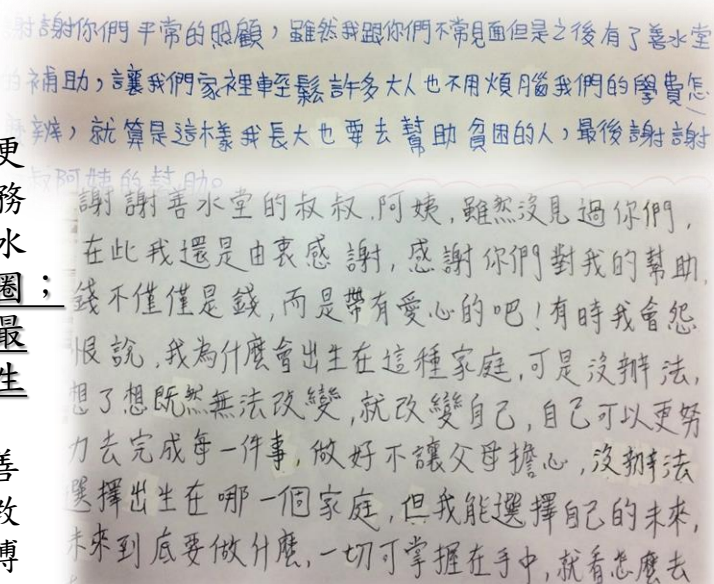 謝謝你們平常的照顧，雖然我跟你們不常見面但是之後有了善水堂
的補助，讓我們家裡輕鬆許多大人也不用煩腦我們的學費怎
辦，就算是這樣我長大也要去幫助貧困的人，最後謝謝
叔阿姨的幫助。
謝謝善水堂的叔叔.阿姨,雖然沒見過你們,
在此我還是由衷感謝,感謝你們對我的幫助,
錢不僅僅是錢,而是帶有愛心的吧!有時我會怨
恨說,我為什麼會出生在這種家庭,可是沒辦法,
想了想既然無法改變,就改變自己,自己可以更努
力去完成每一件事,做好不讓父母擔心,沒辦法
選擇出生在哪一個家庭,但我能選擇自己的未來,
未來到底要做什麼,一切可掌握在手中,就看怎麼去
更
務
水
圈；
最
生
善
教
博